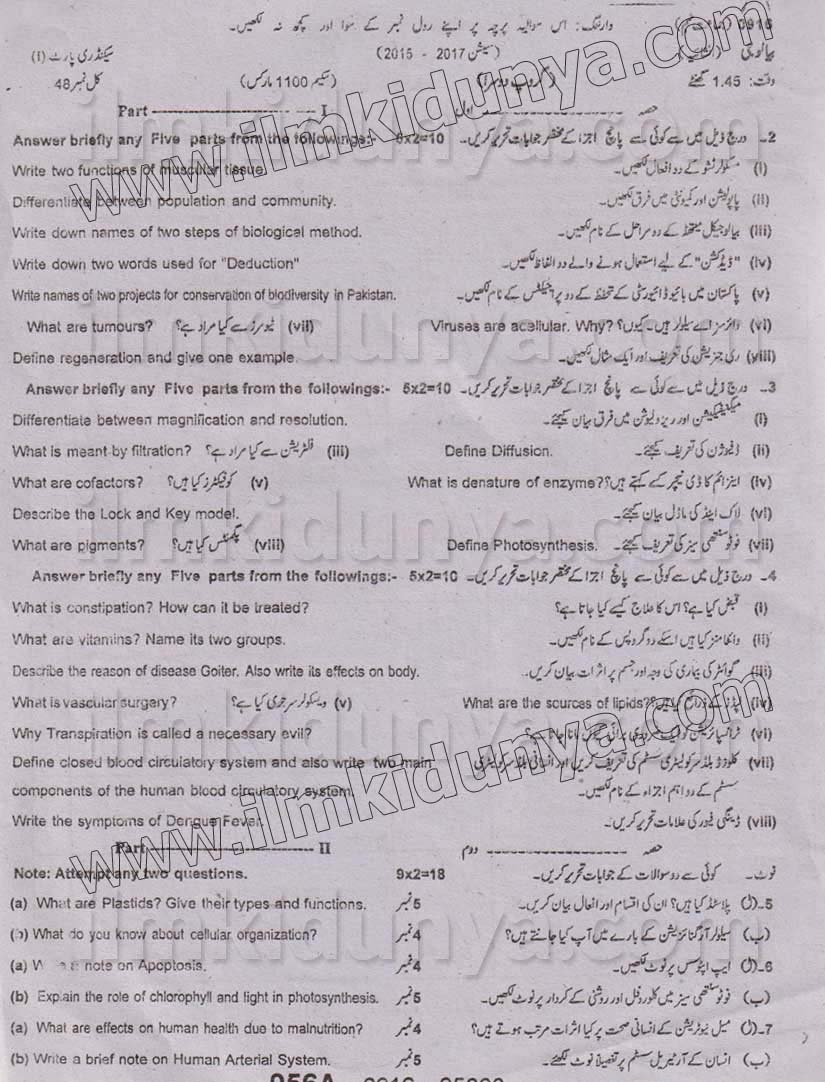 وارننگ: اس سوالیہ پرچہ پر اپنے رول نمبر کے سوا اور کچھ نہ لکھیں۔ 0916
سیکنڈری پارٹ (I) (سیشن 2017 - 2015)
کل نمبر 48 (سکیم 1100 مارکس) وقت: 1.45 گھنٹے
Part I حصہ اول
Answer briefly any Five parts from the followings:- 5x2=10 2۔ درج ذیل میں سے کوئی سے پانچ اجزا کے مختصر جوابات تحریر کریں۔
Write two functions of muscular tissue. (i) مسکولر ٹشو کے دو افعال لکھیں۔
Differentiate between population and community. (ii) پاپولیشن اور کمیونٹی میں فرق لکھیں۔
Write down names of two steps of biological method. (iii) بیالوجیکل میتھڈ کے دو مراحل کے نام لکھیں۔
Write down two words used for "Deduction" (iv) "ڈیڈکشن" کے لیے استعمال ہونے والے دو الفاظ لکھیں۔
Write names of two projects for conservation of biodiversity in Pakistan. (v) پاکستان میں بائیوڈائیورسٹی کے تحفظ کے دو پراجیکٹس کے نام لکھیں۔
What are tumours? ٹیومرز سے کیا مراد ہے؟ (vii) Viruses are acellular. Why? وائرسز اے سیلولر ہیں۔ کیوں؟ (vi)
Define regeneration and give one example. (viii) ری جنریشن کی تعریف اور ایک مثال لکھیں۔
Answer briefly any Five parts from the followings:- 5x2=10 3۔ درج ذیل میں سے کوئی سے پانچ اجزا کے مختصر جوابات تحریر کریں۔
Differentiate between magnification and resolution. (i) میگنیفیکیشن اور ریزولیوشن میں فرق بیان کیجئے۔
What is meant by filtration? فلٹریشن سے کیا مراد ہے؟ (iii) Define Diffusion. ڈفیوژن کی تعریف کیجئے۔ (ii)
What are cofactors? کوفیکٹرز کیا ہیں؟ (v) What is denature of enzyme? اینزائم کا ڈی نیچر کسے کہتے ہیں؟ (iv)
Describe the Lock and Key model. (vi) لاک اینڈ کی ماڈل بیان کیجئے۔
What are pigments? پگمنٹس کیا ہیں؟ (viii) Define Photosynthesis. فوٹوسنتھی سیز کی تعریف کیجئے۔ (vii)
Answer briefly any Five parts from the followings:- 5x2=10 4۔ درج ذیل میں سے کوئی سے پانچ اجزا کے مختصر جوابات تحریر کریں۔
What is constipation? How can it be treated? (i) قبض کیا ہے؟ اس کا علاج کیسے کیا جاتا ہے؟
What are vitamins? Name its two groups. (ii) وٹامنز کیا ہیں اسکے دو گروپس کے نام لکھیں۔
Describe the reason of disease Goiter. Also write its effects on body. (iii) گوائٹر کی بیماری کی وجہ اور جسم پر اثرات بیان کریں۔
What is vascular surgery? ویسکولر سرجری کیا ہے؟ (v) What are the sources of lipids? (iv)
Why Transpiration is called a necessary evil? (vi)
Define closed blood circulatory system and also write two main (vii) کلوزڈ بلڈ سرکولیٹری سسٹم کی تعریف کریں اور انسانی بلڈ سرکولیٹری
components of the human blood circulatory system. سسٹم کے دو اہم اجزاء کے نام لکھیں۔
Write the symptoms of Dengue Fever. (viii) ڈینگی فیور کی علامات تحریر کریں۔
Part II حصہ دوم
Note: Attempt any two questions. 9x2=18 نوٹ۔ کوئی سے دو سوالات کے جوابات تحریر کریں۔
(a) What are Plastids? Give their types and functions. 5 نمبر 5۔ (ا) پلاسٹڈ کیا ہیں؟ ان کی اقسام اور افعال بیان کریں۔
(b) What do you know about cellular organization? 4 نمبر (ب) سیلولر آرگنائزیشن کے بارے میں آپ کیا جانتے ہیں؟
(a) note on Apoptosis. 4 نمبر 6۔ (ا) ایپ اپٹوسس پر نوٹ لکھیں۔
(b) Explain the role of chlorophyll and light in photosynthesis. 5 نمبر (ب) فوٹوسنتھی سیز میں کلوروفل اور روشنی کے کردار پر نوٹ لکھیں۔
(a) What are effects on human health due to malnutrition? 4 نمبر 7۔ (ا) میل نیوٹریشن کے انسانی صحت پر کیا اثرات مرتب ہوتے ہیں؟
(b) Write a brief note on Human Arterial System. 5 نمبر (ب) انسان کے آرٹیریل سسٹم پر تفصیلاً نوٹ لکھئے۔
www.ilmkidunya.com
www.ilmkidunya.com